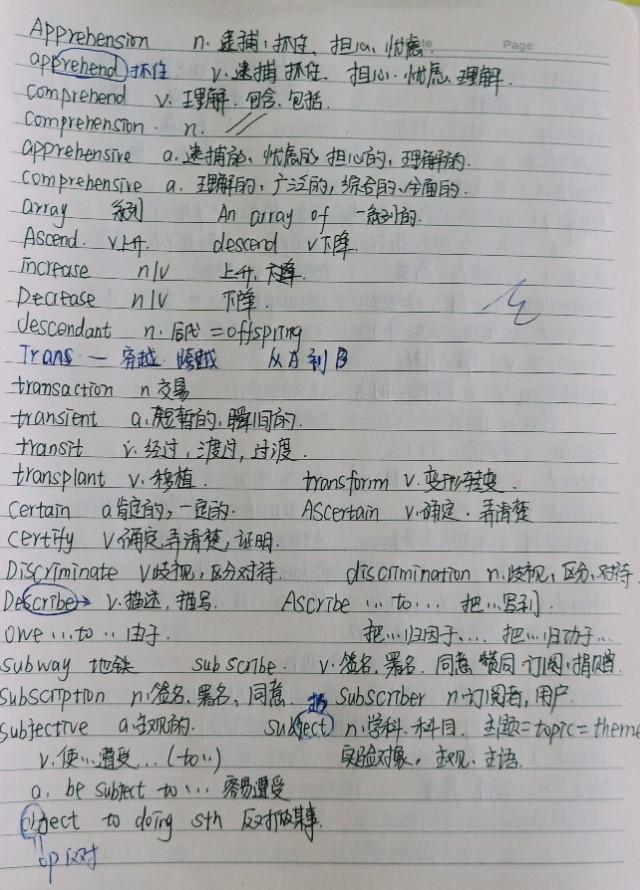 Page
Apprehension n. 逮捕, 抓住、担心, 忧虑
apprehend 抓住 v. 逮捕 抓住. 担心. 忧虑. 理解.
comprehend v. 理解. 包含. 包括.
comprehension. n. //
apprehensive a. 逮捕的、忧虑的, 担心的, 理解的.
comprehensive a. 理解的, 广泛的, 综合的、全面的.
array 系列 An array of 一系列的.
Ascend. v上升 descend v下降.
increase n/v 上升,
Decrease n/v 下降.
descendant n. 后代 = offspring
Trans — 穿越 跨越 从A到B
transaction n 交易
transient a. 短暂的, 瞬间的.
transit v. 经过, 渡过, 过渡.
transplant v. 移植. transform v. 变形 转变.
certain a 肯定的, 一定的. Ascertain v. 确定. 弄清楚
certify v 确定, 弄清楚, 证明.
Discriminate v 歧视, 区分对待. discrimination n. 歧视, 区分. 对待.
Describe → v. 描述, 描写. Ascribe ... to ... 把...写到.
owe ... to .. 由于. 把...归因于.... 把...归功于...
subway 地铁 subscribe. v. 签名, 署名. 同意 赞同. 订阅. 捐赠.
subscription n. 签名, 署名, 同意 Subscriber n. 订阅者, 用户.
subjective a. 主观的. subject n. 学科. 科目. 主题 = topic = theme
v. 使... 遭受 ... (to..) 实验对象. 主观. 主语.
a. be subject to ... 容易遭受
object to doing sth 反对做某事.
op 反对